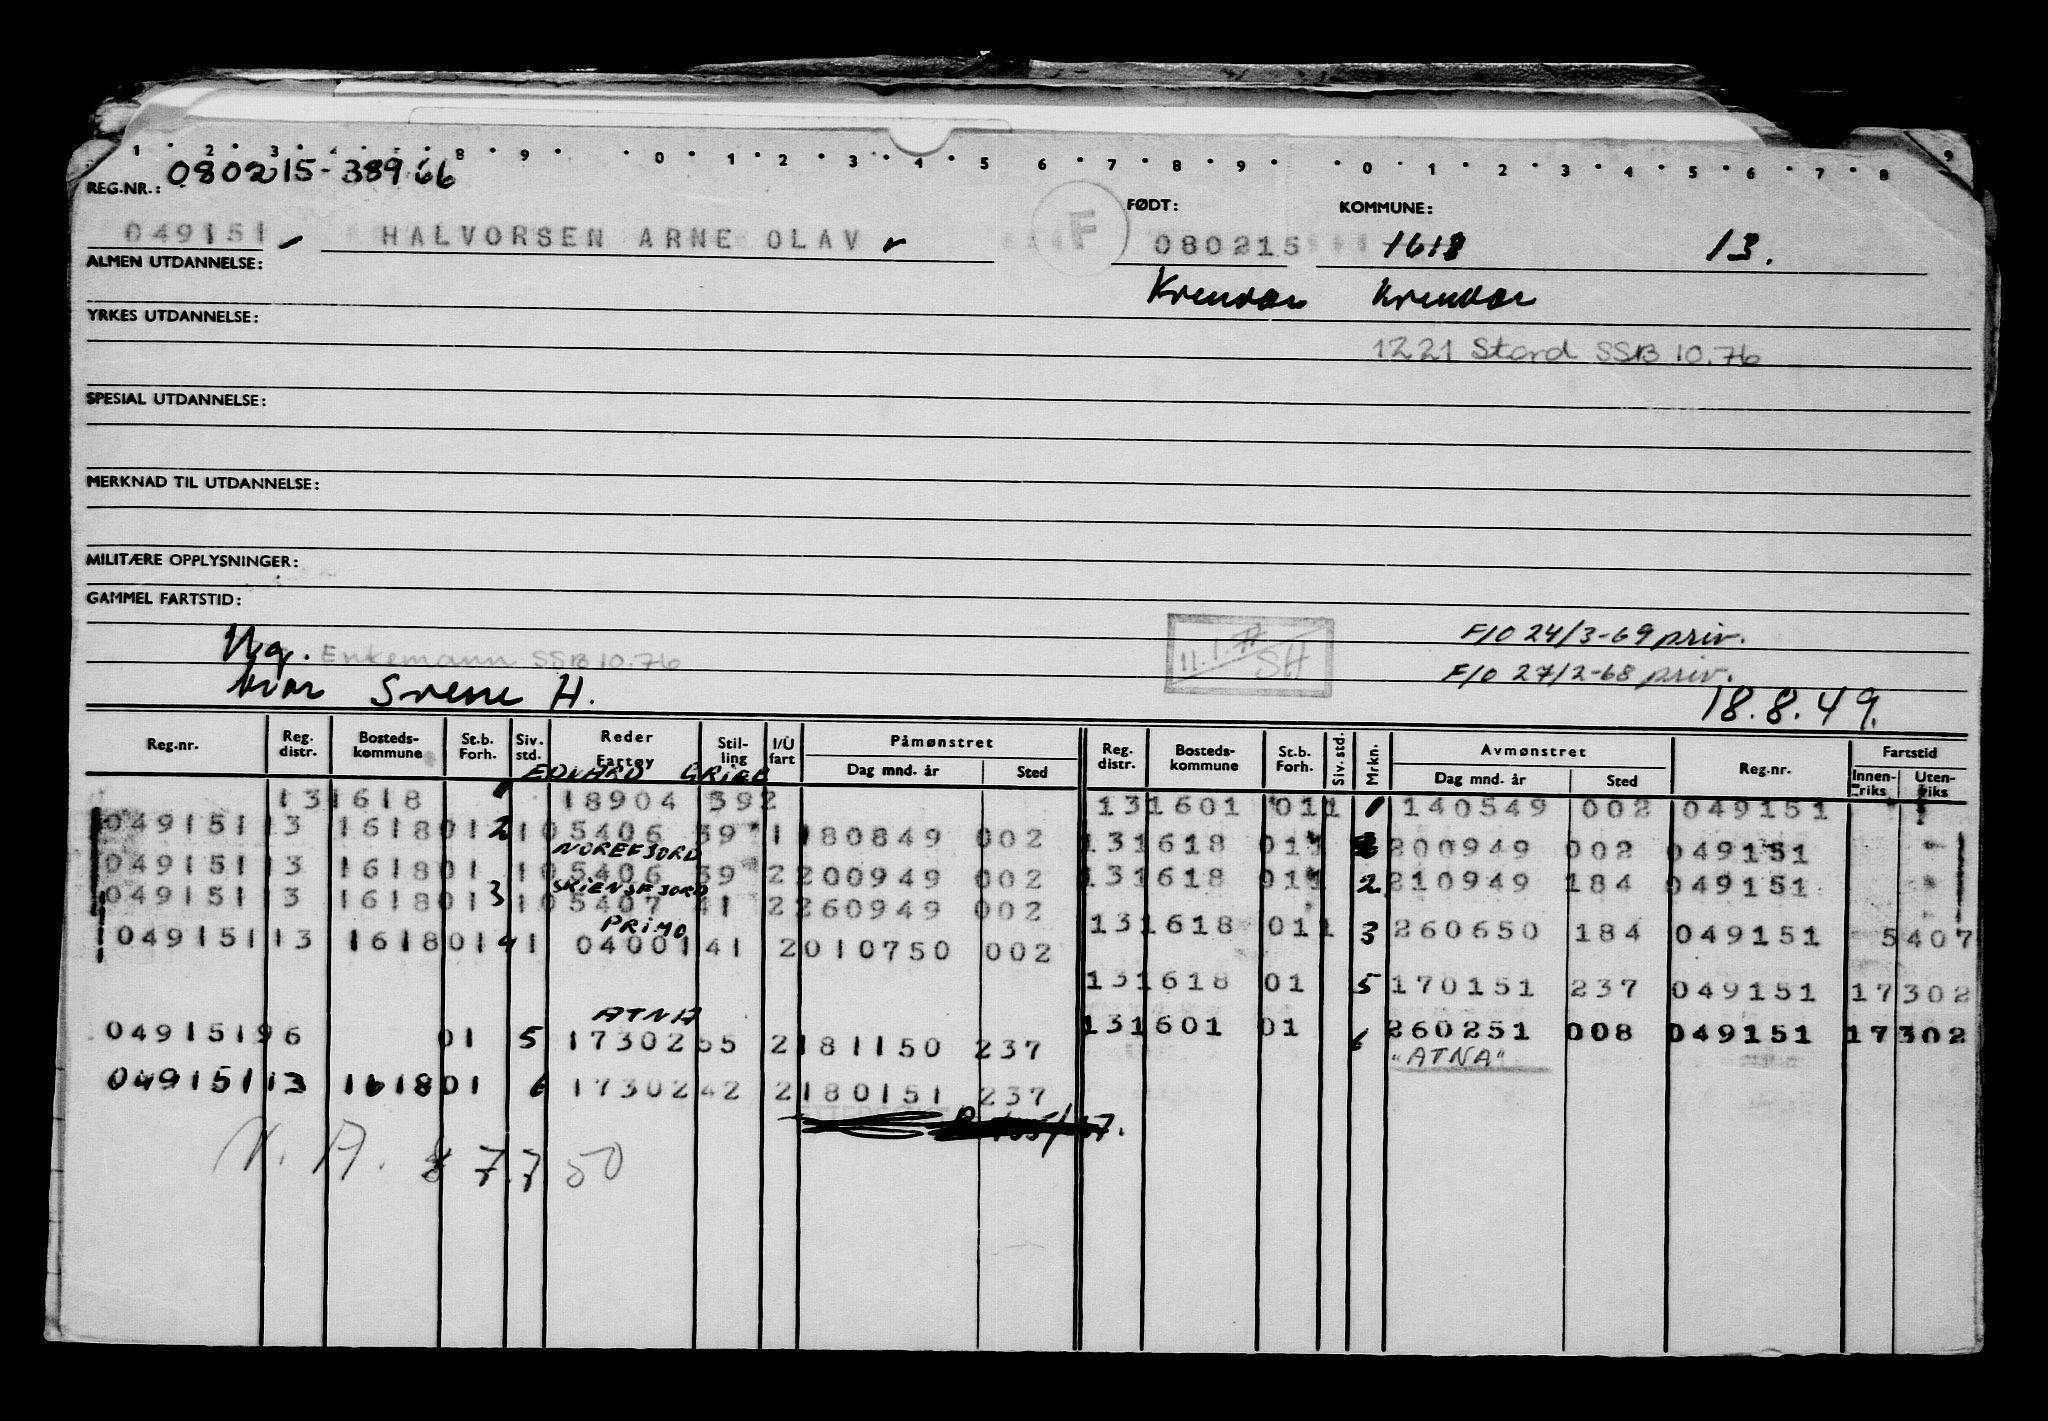 1 2 3 8 9 0 1 2 3 4 5 6 7 8 9 0 1 2 3 4 5 6 7 8 9
080215-38966
REG.NR.: FØDT: KOMMUNE:
049151 HALVORSEN ARNE OLAV F 080215 1618 13.
ALMEN UTDANNELSE:
YRKES UTDANNELSE:
1221 Stord SSB 10.76
SPESIAL UTDANNELSE:
MERKNAD TIL UTDANNELSE:
MILITÆRE OPPLYSNINGER:
GAMMEL FARTSTID:
Ug. Enkemann SSB 10.76 SH F/O 24/3-69 priv.
F/O 27/2-68 priv.
bror Sverre H. 18.8.49.
Reg.nr. Reg. distr. Bosteds-kommune St.b. Forh. Siv. std. Reder Fartøy Stil-ling I/U fart Påmønstret Dag mnd. år Sted Reg. distr. Bosteds-kommune St.b. Forh. Siv. std. Mrkn. Avmønstret Dag mnd. år Sted Reg.nr. Fartstid Innen-riks Uten-riks
EDVARD GRIEG
131618 1 18904 392 131601 011 1 140549 002 049151
049151 13 1618 01 2 1 05406 39 1 180849 002 131618 011 200949 002 049151
NOREFJORD
049151 13 1618 01 1 05406 39 2 200949 002 131618 011 2 210949 184 049151
SKIENSFJORD
049151 13 1618 01 3 1 05407 41 2 260949 002 131618 011 3 260650 184 049151 5407
PRIMO
049151 13 1618 01 4 1 04001 41 2 010750 002
131618 01 5 170151 237 049151 17302
ATNA
049151 96 01 5 17302 55 2 181150 237 131601 01 6 260251 008 049151 17302
"ATNA"
049151 13 1618 01 6 17302 42 2 180151 237
N. A. 7.7 50